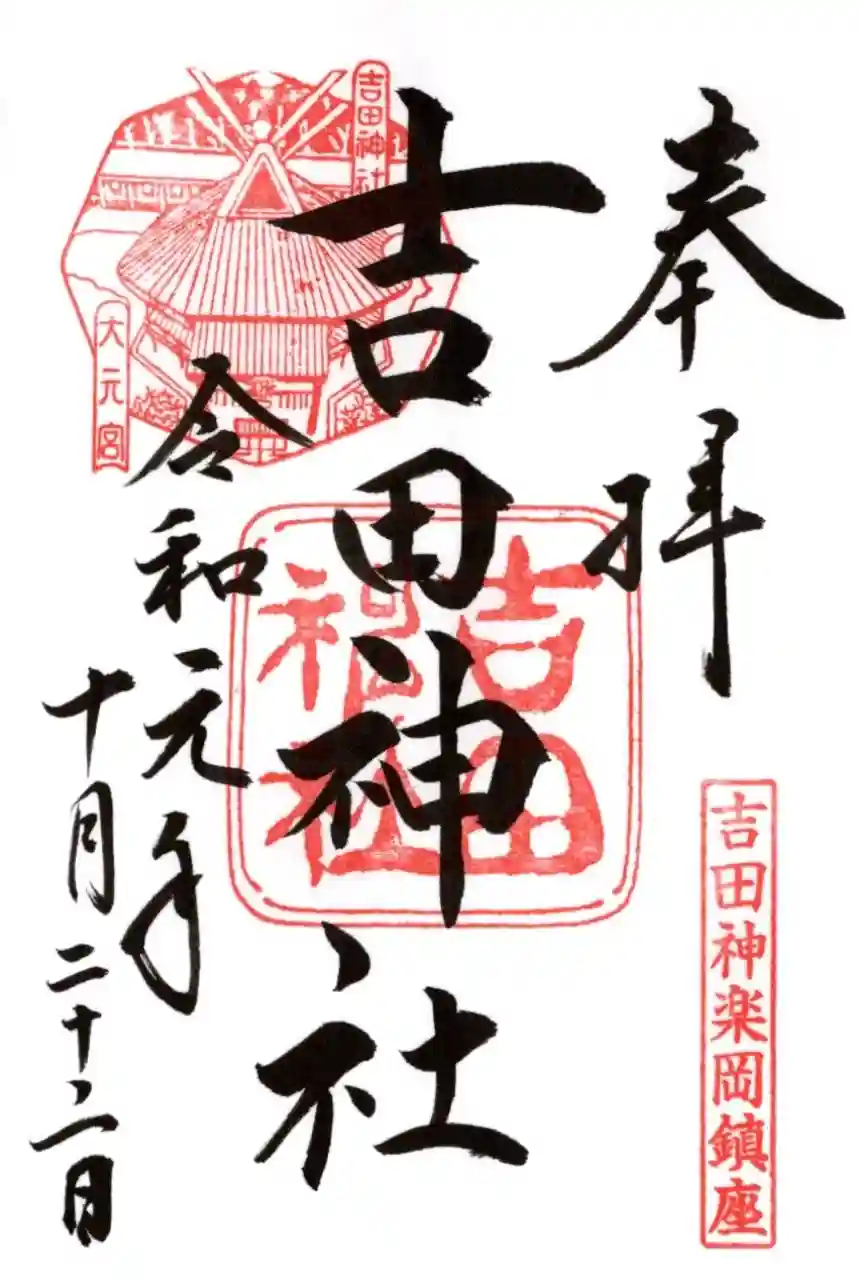 奉拝
吉田神楽岡鎮座
吉田神社
吉田神社
吉田神社
大元宮
令和元年
十月二十二日